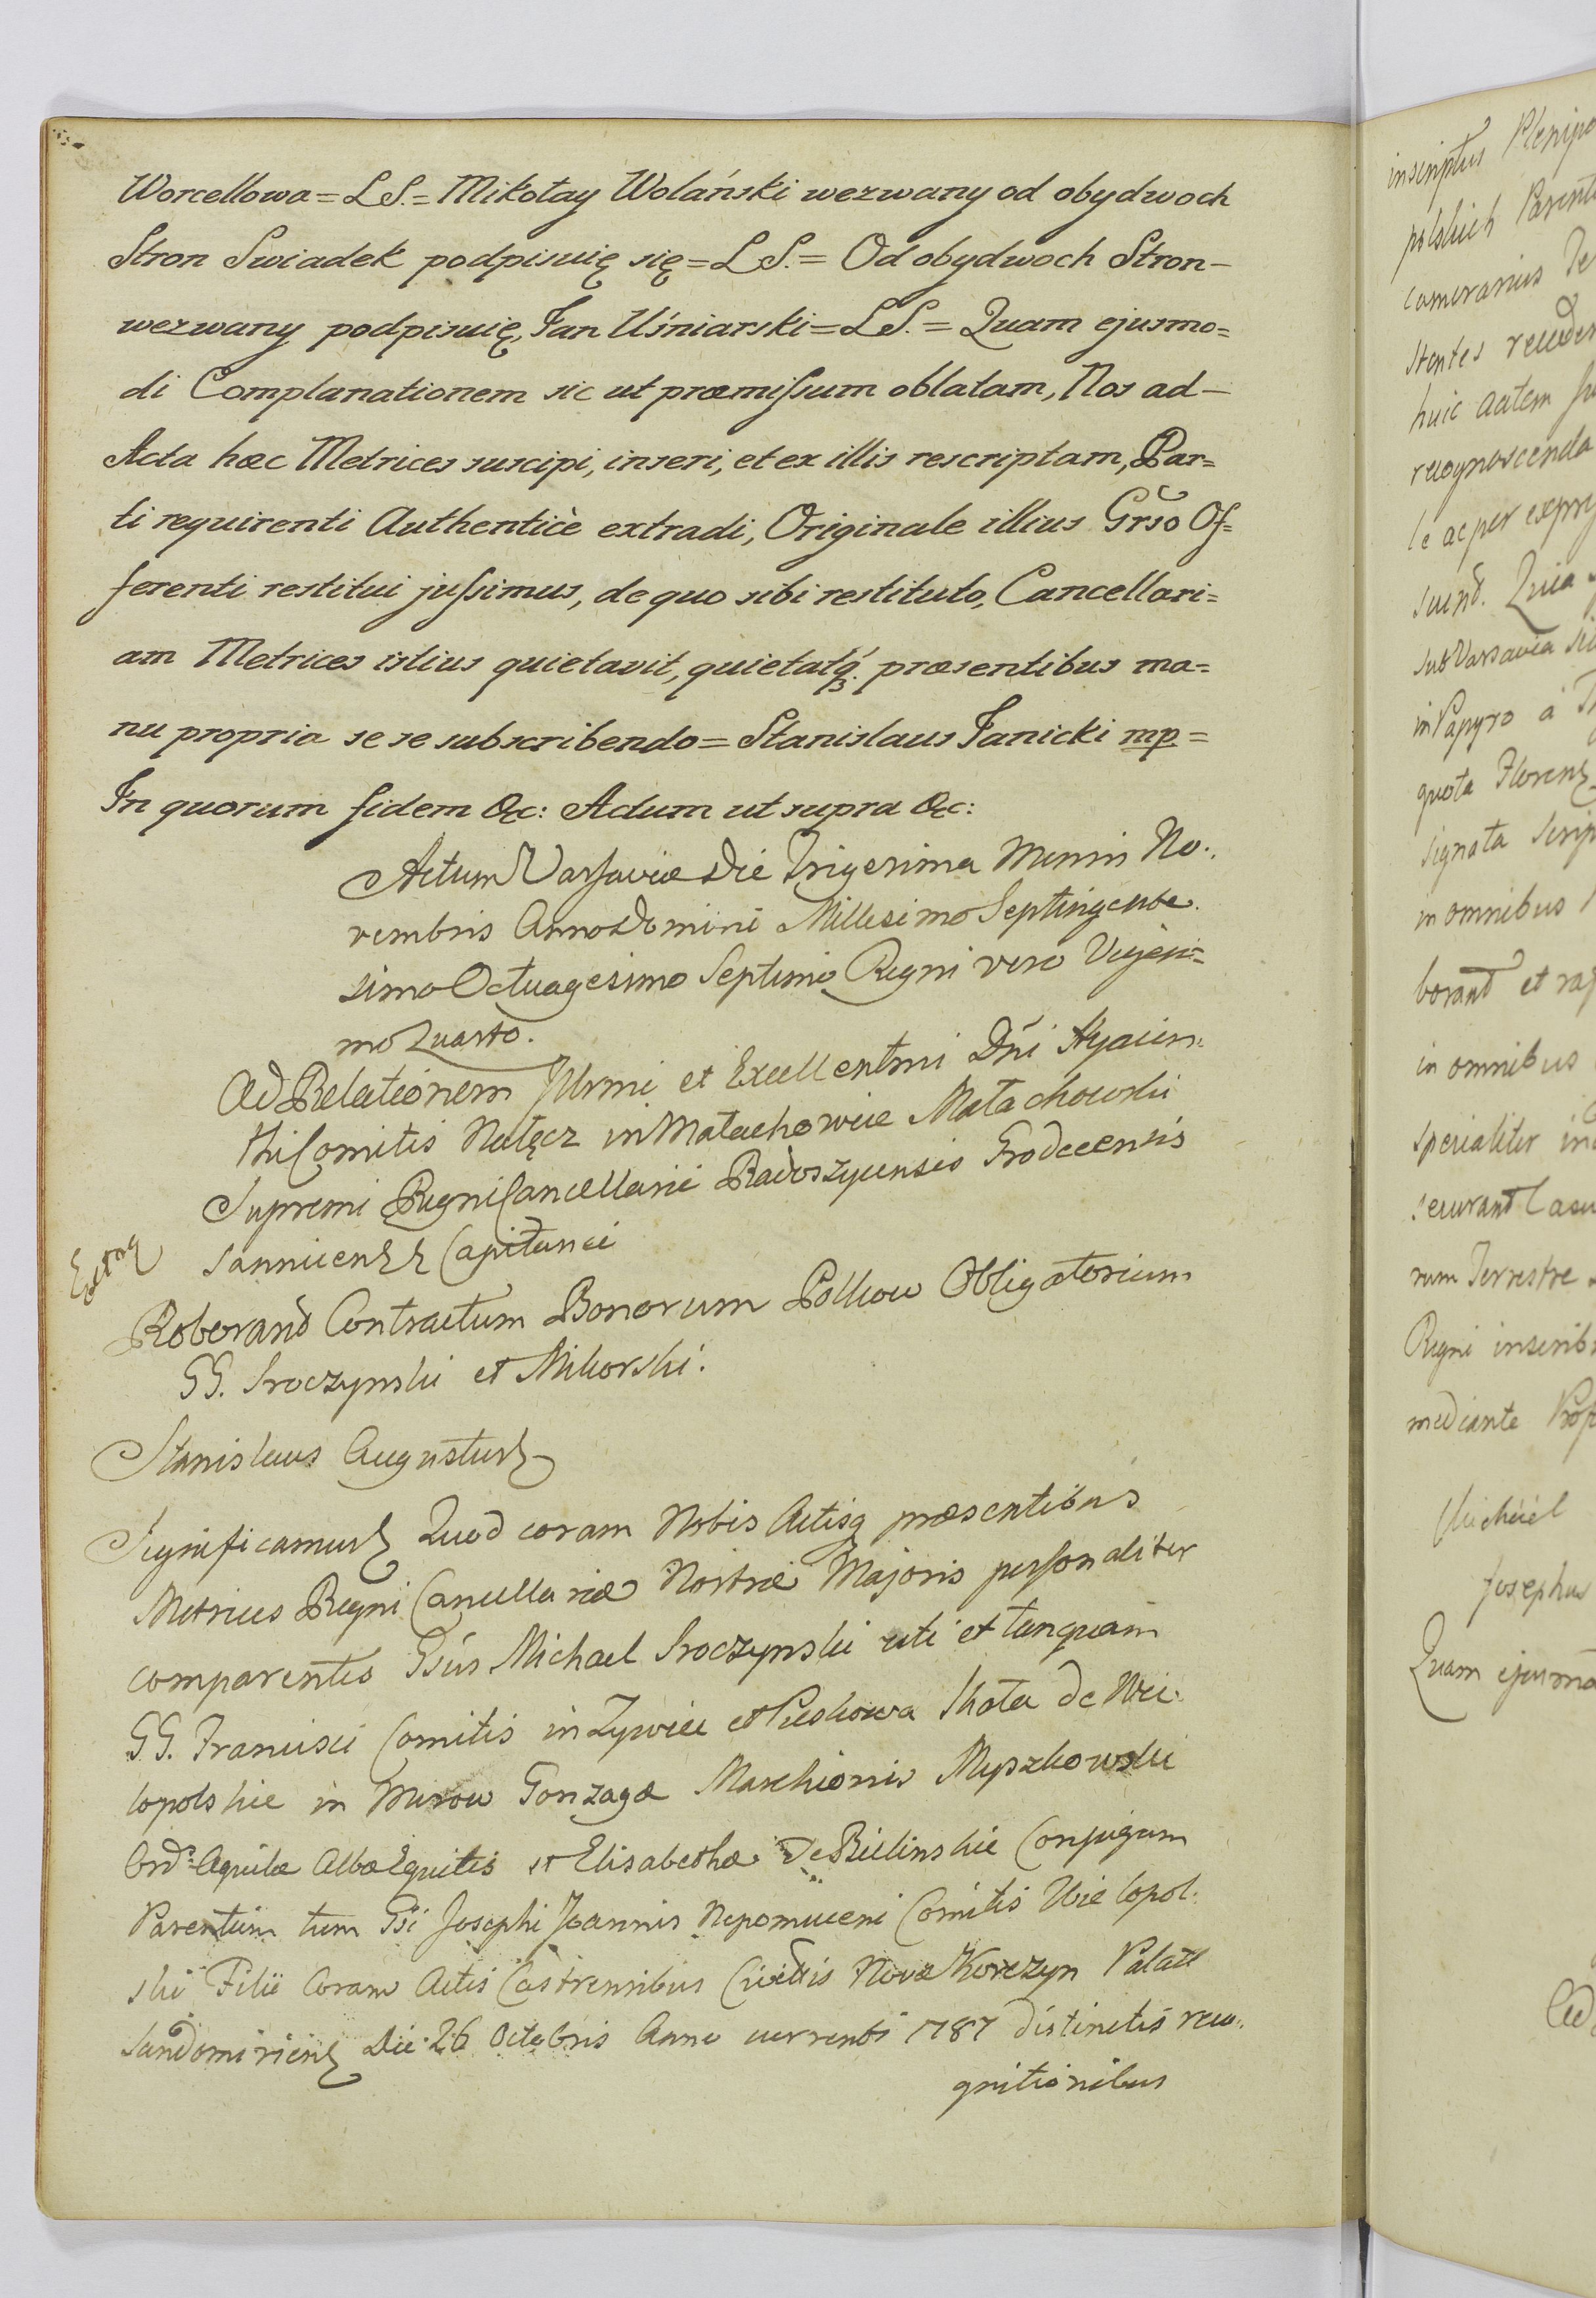 Worcellowa = L S. = Mikołay Wolański wezwany od obydwoch
Stron Swiadek podpisuię się = L S. = Od obydwoch Stron –
wezwany podpisuię, Jan Uśniarski = L S. = Quam ejusmo=
di Complanationem sic ut præmiſsum oblatam, Nos ad –
Acta hæc Metrices suscipi, inseri, et ex illis rescriptam, Par=
ti requirenti Authenticè extradi, Originale illius Grso Of=
ferenti restitui juſsimus, de quo sibi restituto, Cancellari=
am Metrices istius quietavit, quietatq́ præsentibus ma=
nu propria se se subscribendo = Stanislaus Janicki mp =
In quorum fidem &c: Actum ut supra &c:
Actum Varsaviæ Die Trigesima Mensis No:
vembris Anno Domini Millesimo Septingente
simo Octuagesimo Septimo Regni vero Vigesi=
mo Quarto.
Ad Relationem Illrmi et Excellentmi Dni Hyacin:
thi Comitis Nałęcz in Małachowice Małachowski
Supremi Regni Cancellarii Radoszycensis Grodecensis
Sannicen Capitanei
Extrad
Roborand Contractum Bonorum Polkow Obligatorium
GG. Sroczynski et Mikorski.
Stanislaus Augustus
Significamus Quod coram Nobis Actisq præsentibus
Metrices Regni Cancellariæ Nostræ Majoris personaliter
comparentes Gsus Michael Sroczynski uti et tanquam
GG. Francisci Comitis in Zywiec et Pieskowa Skała de Wie
lopolskie in Mirow Gonzaga Marchionis Myszkowski
Ord: Aquilæ Albæ Equitis et Elisabethæ De Bielinskie Conjugum
Parentum tum Gsi Josephi Joannis Nepomuceni Comitis Wielopol:
ski Filii Coram Actis Castrensibus Civettis Novæ Korczyn Palatt
Sandomirien Die 26 Octobris Anno currenti 1787 distinctis reco:
gnitionibus
inscriptus
polskich
camerarius
stentes
huic autem
recognoscenda
le ac per
suend. Quia
sub Varsavia
in Papyro a
quota Floren
signata
in omnibus
borand et
in omnibus
specialiter
securand
rum Terrestre
Regni
mediante
Michael
Josephus
Quam ejusmo
Ad